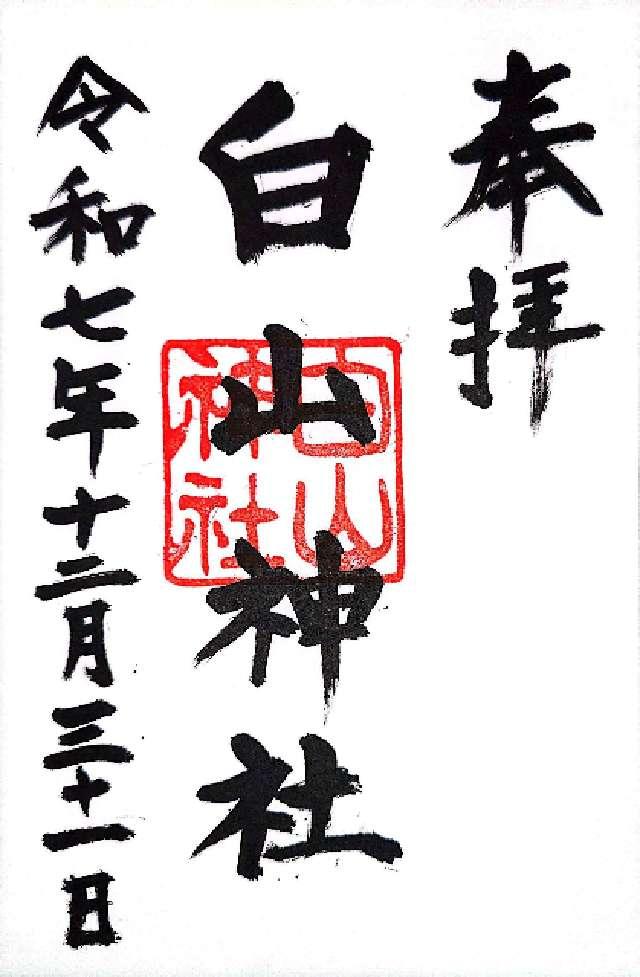 奉拝
白山神社
白山神社
令和七年十二月三十一日